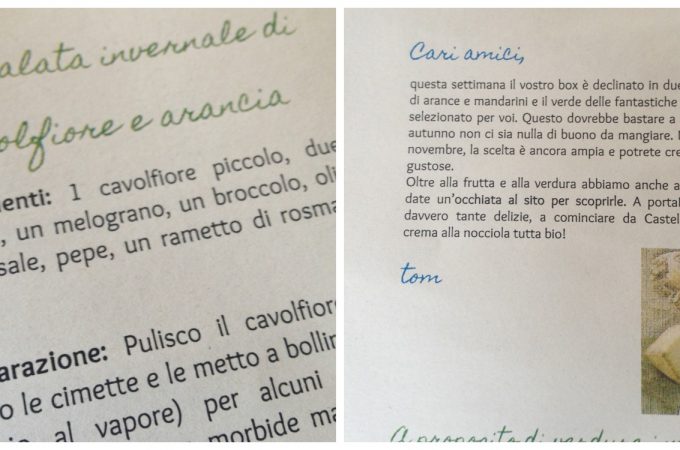 alata invernale di
olfiore e arancia
enti: 1 cavolfiore piccolo, due
, un melograno, un broccolo, oli
sale, pepe, un rametto di rosma
arazione: Pulisco il cavolfiore
o le cimette e le metto a bollin
al vapore) per alcuni
morbide ma
Cari amici,
questa settimana il vostro box è declinato in due
di arance e mandarini e il verde delle fantastiche
selezionato per voi. Questo dovrebbe bastare a
autunno non ci sia nulla di buono da mangiare.
novembre, la scelta è ancora ampia e potrete cre
gustose.
Oltre alla frutta e alla verdura abbiamo anche a
date un'occhiata al sito per scoprirle. A portal
davvero tante delizie, a cominciare da Castel
crema alla nocciola tutta bio!
tom
A proposito di verdura